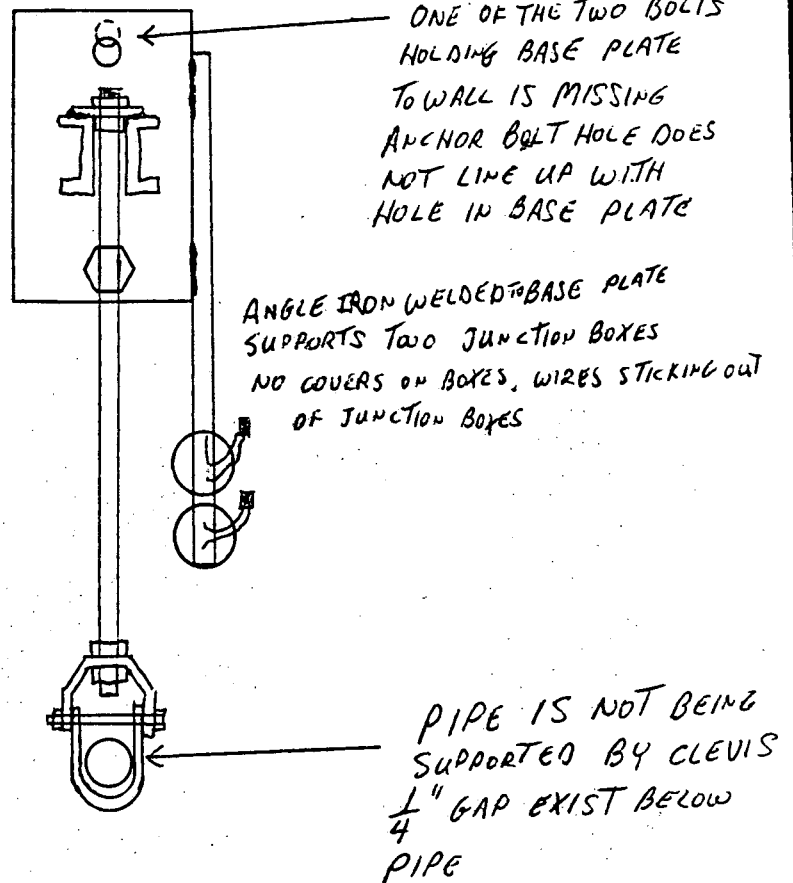 ONE OF THE TWO BOLTS
HOLDING BASE PLATE
TO WALL IS MISSING
ANCHOR BOLT HOLE DOES
NOT LINE UP WITH
HOLE IN BASE PLATE
ANGLE IRON WELDED TO BASE PLATE
SUPPORTS TWO JUNCTION BOXES
NO COVERS ON BOXES, WIRES STICKING OUT
OF JUNCTION BOXES
PIPE IS NOT BEING
SUPPORTED BY CLEVIS
1/4" GAP EXIST BELOW
PIPE